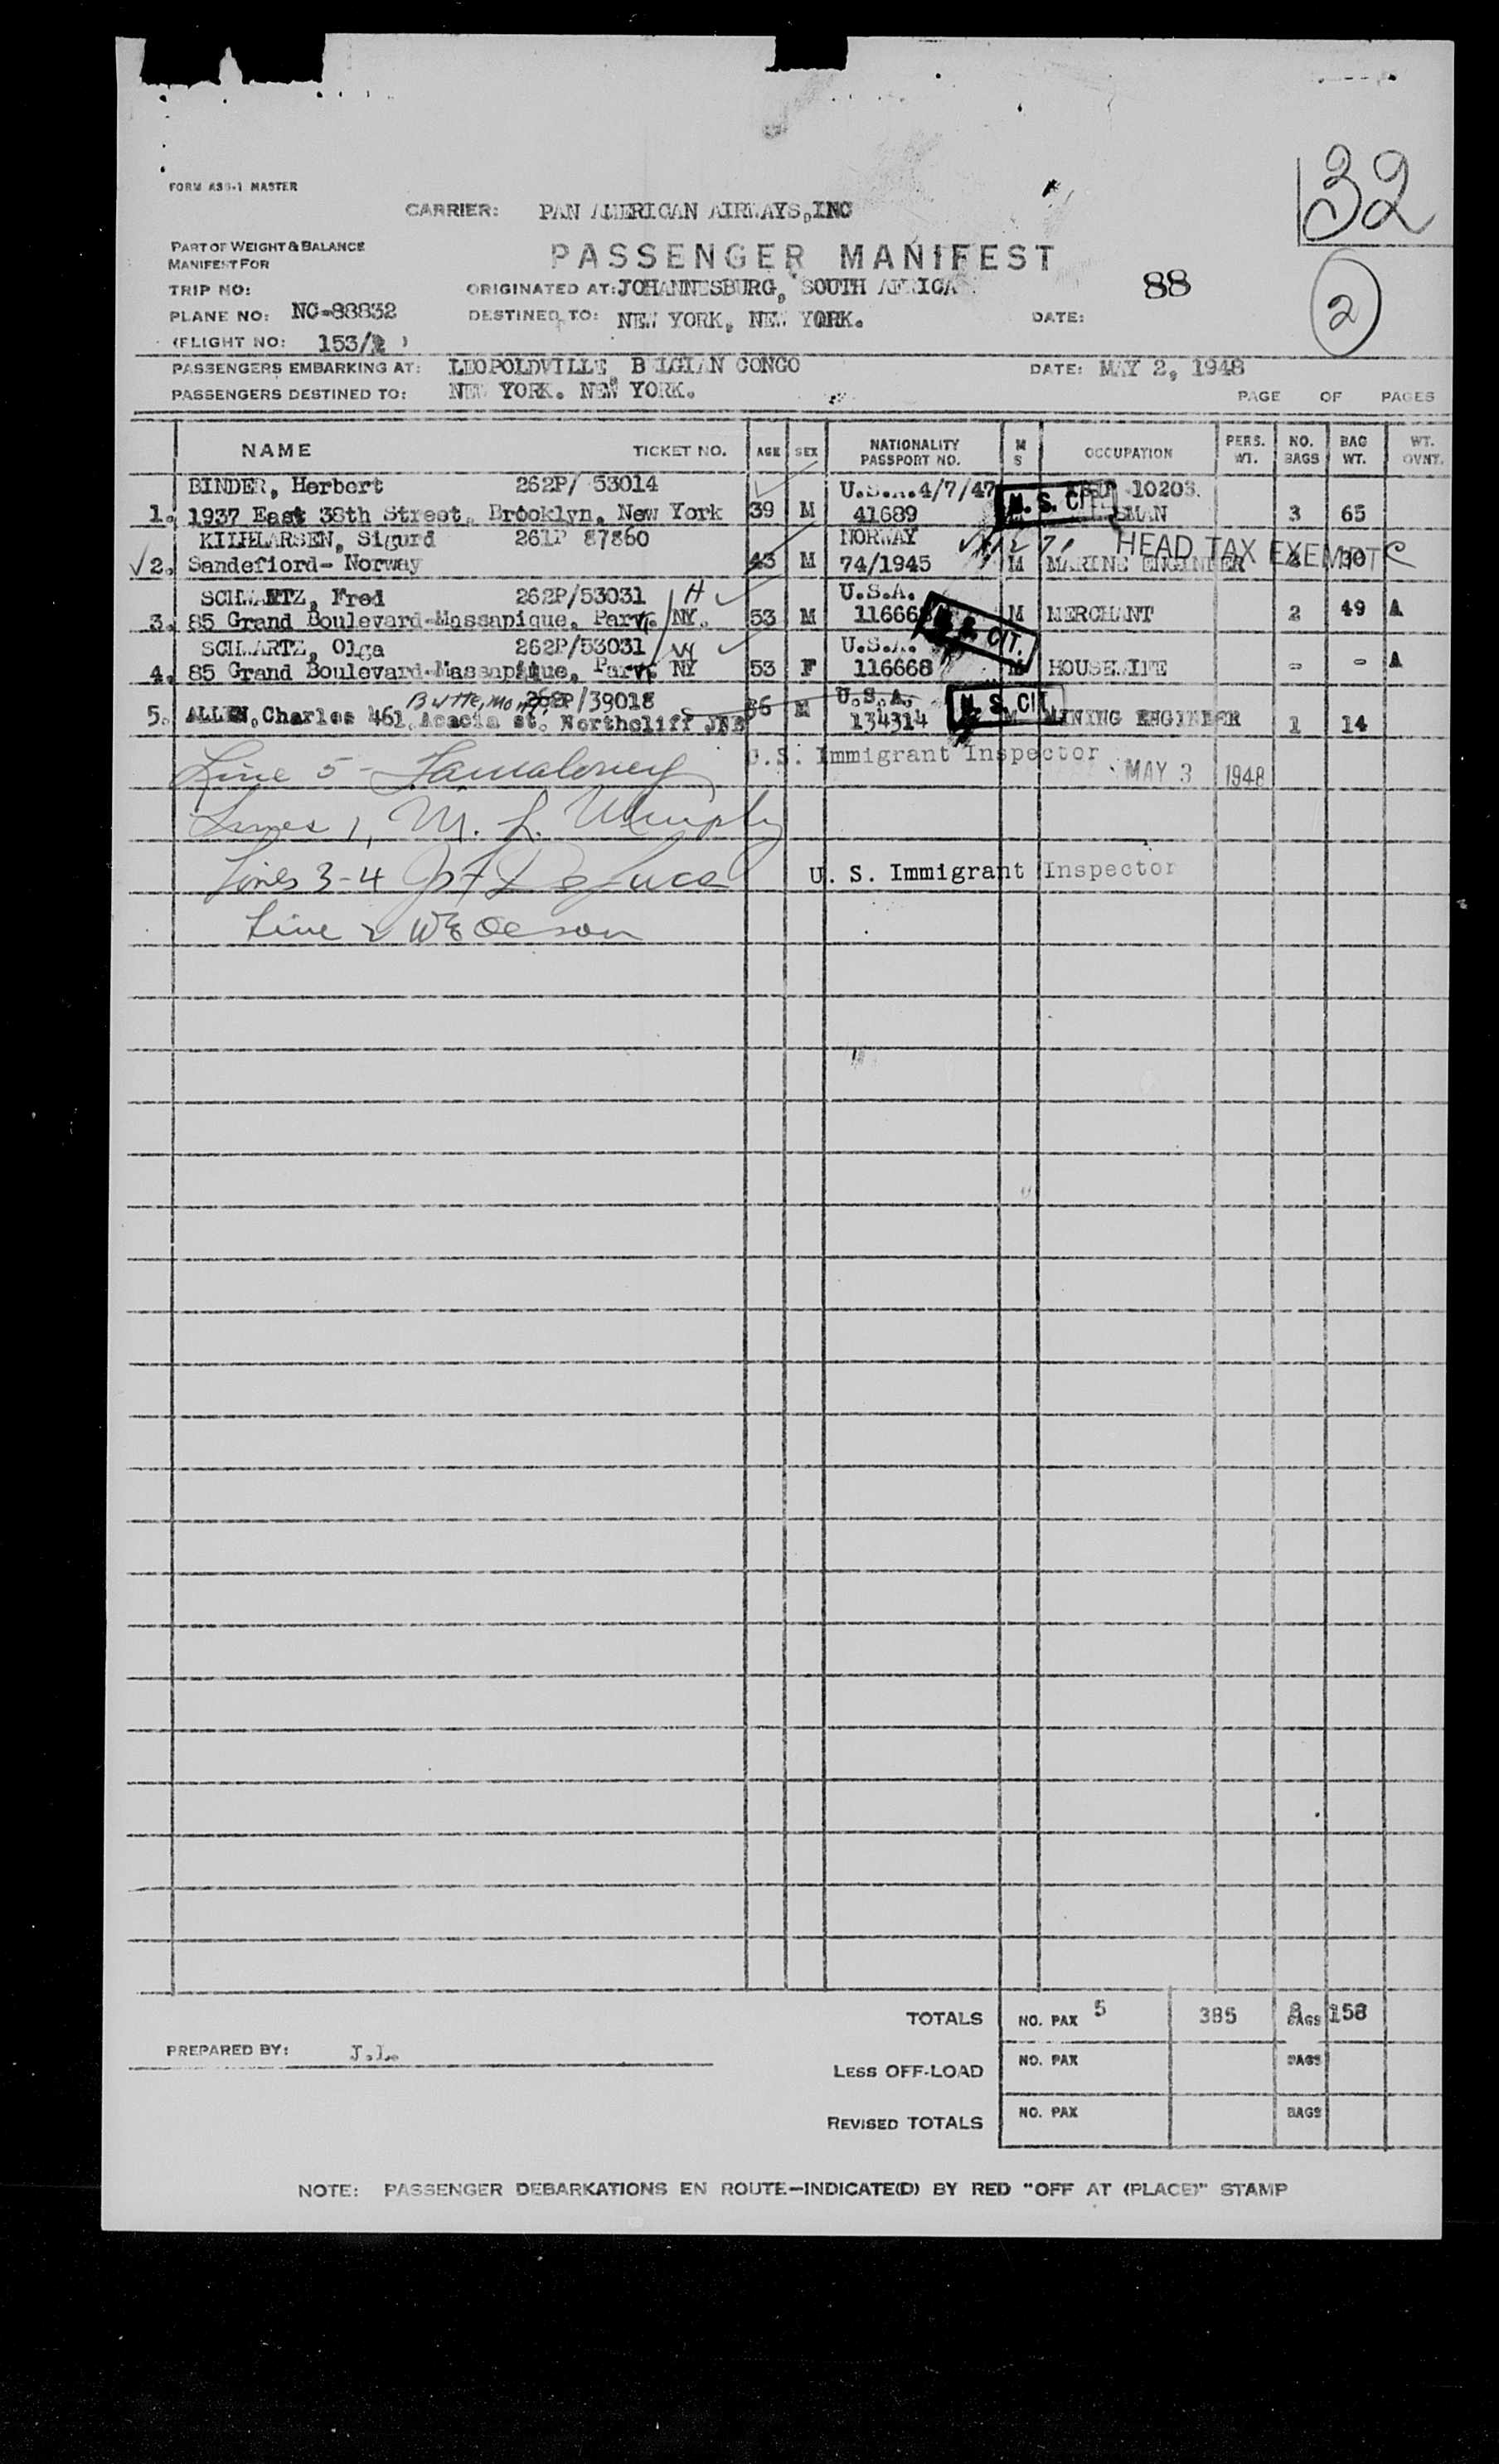 32
FORM ASS-1 MASTER
CARRIER: PAN AMERICAN AIRWAYS, INC
PART OF WEIGHT & BALANCE
MANIFEST FOR
PASSENGER MANIFEST
88
2
TRIP NO:
ORIGINATED AT: JOHANNESBURG, SOUTH AFRICA
PLANE NO: NC-88832
DESTINED TO: NEW YORK, NEW YORK.
DATE:
(FLIGHT NO: 153/2 )
PASSENGERS EMBARKING AT: LEOPOLDVILLE BELGIAN CONGO
DATE: MAY 2, 1948
PASSENGERS DESTINED TO: NEW YORK. NEW YORK.
PAGE OF PAGES
NAME TICKET NO. AGE SEX NATIONALITY PASSPORT NO. M S OCCUPATION PERS. WT. NO. BAGS BAG WT. WT. OVNT.
BINDER, Herbert 262P/ 53014 U.S.A. 4/7/47 10203.
1. 1937 East 38th Street, Brooklyn, New York 39 M 41689 U. S. CIT. SMAN 3 65
KILHLARSEN, Sigurd 261P 87860 NORWAY HEAD TAX EXEMPT C
2. Sandefiord- Norway 43 M 74/1945 M MARINE ENGINEER 2 30
SCHWARTZ, Fred 262P/53031 H U.S.A.
3. 85 Grand Boulevard-Massapique, Park. NY. 53 M 116668 U. S. CIT. M MERCHANT 2 49 A
SCHWARTZ, Olga 262P/53031 W U.S.A.
4. 85 Grand Boulevard-Massapique, Park. NY 53 F 116668 M HOUSEWIFE - - A
Butte, Mont. 262P/39018 U.S.A.
5. ALLEN, Charles 461 Acacia st. Northcliff JNB 56 M 134314 U. S. CIT M MINING ENGINEER 1 14
Line 5 - U.S. Immigrant Inspector MAY 3 1948
Lines 1, M. L. Murphy
Lines 3-4 Jos F DeLuca U. S. Immigrant Inspector
Line 2 WE Oleson
TOTALS NO. PAX 5 385 8 BAGS 158
PREPARED BY: J.L.
LESS OFF-LOAD NO. PAX BAGS
REVISED TOTALS NO. PAX BAGS
NOTE: PASSENGER DEBARKATIONS EN ROUTE—INDICATE(D) BY RED "OFF AT (PLACE)" STAMP